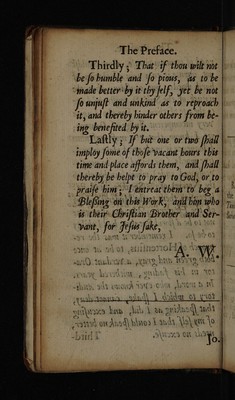 The Preface.
Thirdly; That if thou wilt not
be ſo humble and ſo pious, as to be
made better by it thy ſelf, yet be not
ſo unjuſt and unkind as to reproach
it, and thereby hinder others from be-
ing benefited by it.
Laſtly; If but one or two ſhall
imploy ſome of thoſe vacant hours this
time and place affords them, and ſhall
thereby be helpt to pray to God, or to
praiſe him; I entreat them to beg a
Bleſſing on this Work, and him who
is their Chriſtian Brother and Ser-
vant, for Jeſus ſake,
A. W.
Jo.